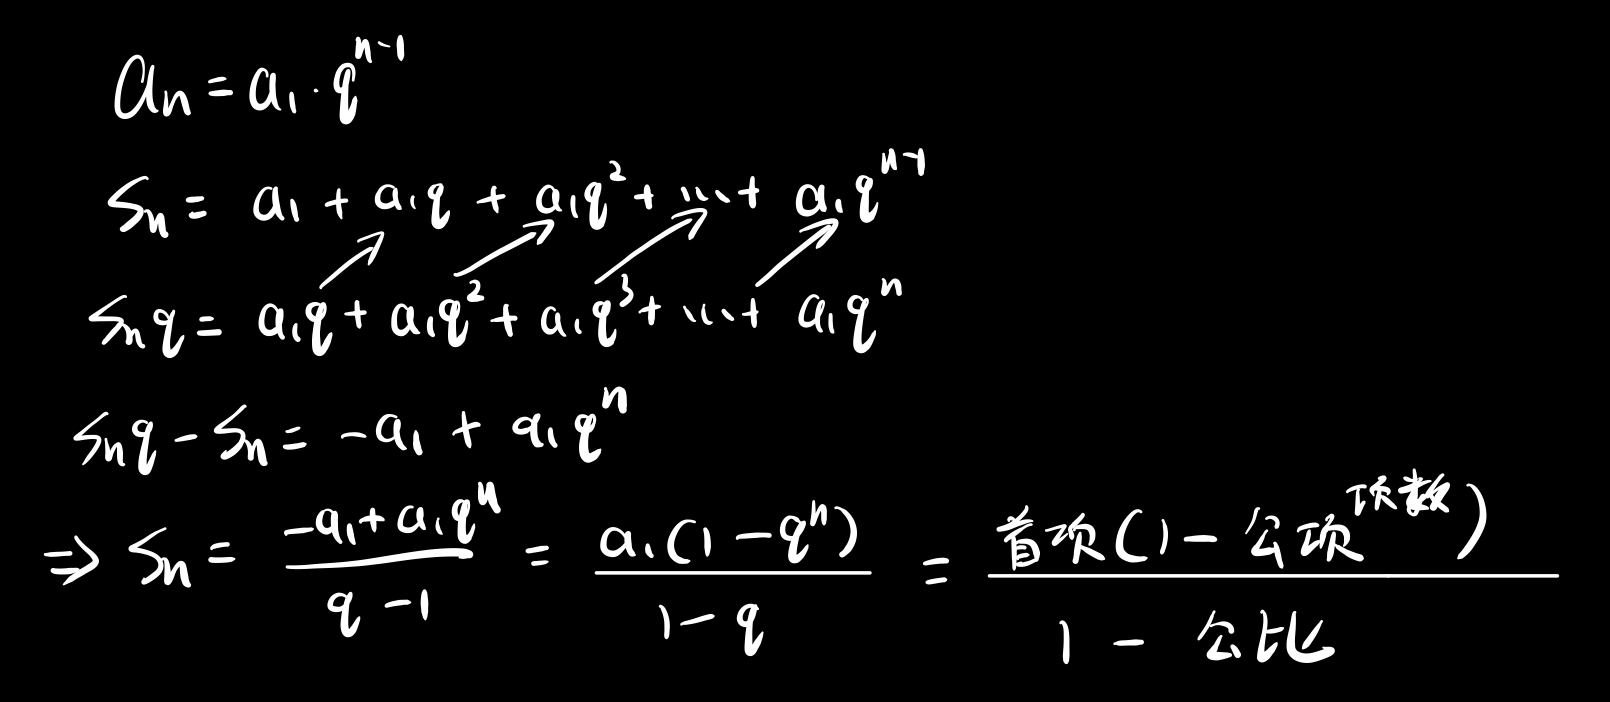 aₙ = a₁ · qⁿ⁻¹
Sₙ = a₁ + a₁q + a₁q² + ... + a₁qⁿ⁻¹
Sₙq = a₁q + a₁q² + a₁q³ + ... + a₁qⁿ
Sₙq - Sₙ = -a₁ + a₁qⁿ
⇒ Sₙ = (-a₁ + a₁qⁿ)/(q - 1) = a₁(1 - qⁿ)/(1 - q) = 首项(1 - 公项^项数)/(1 - 公比)